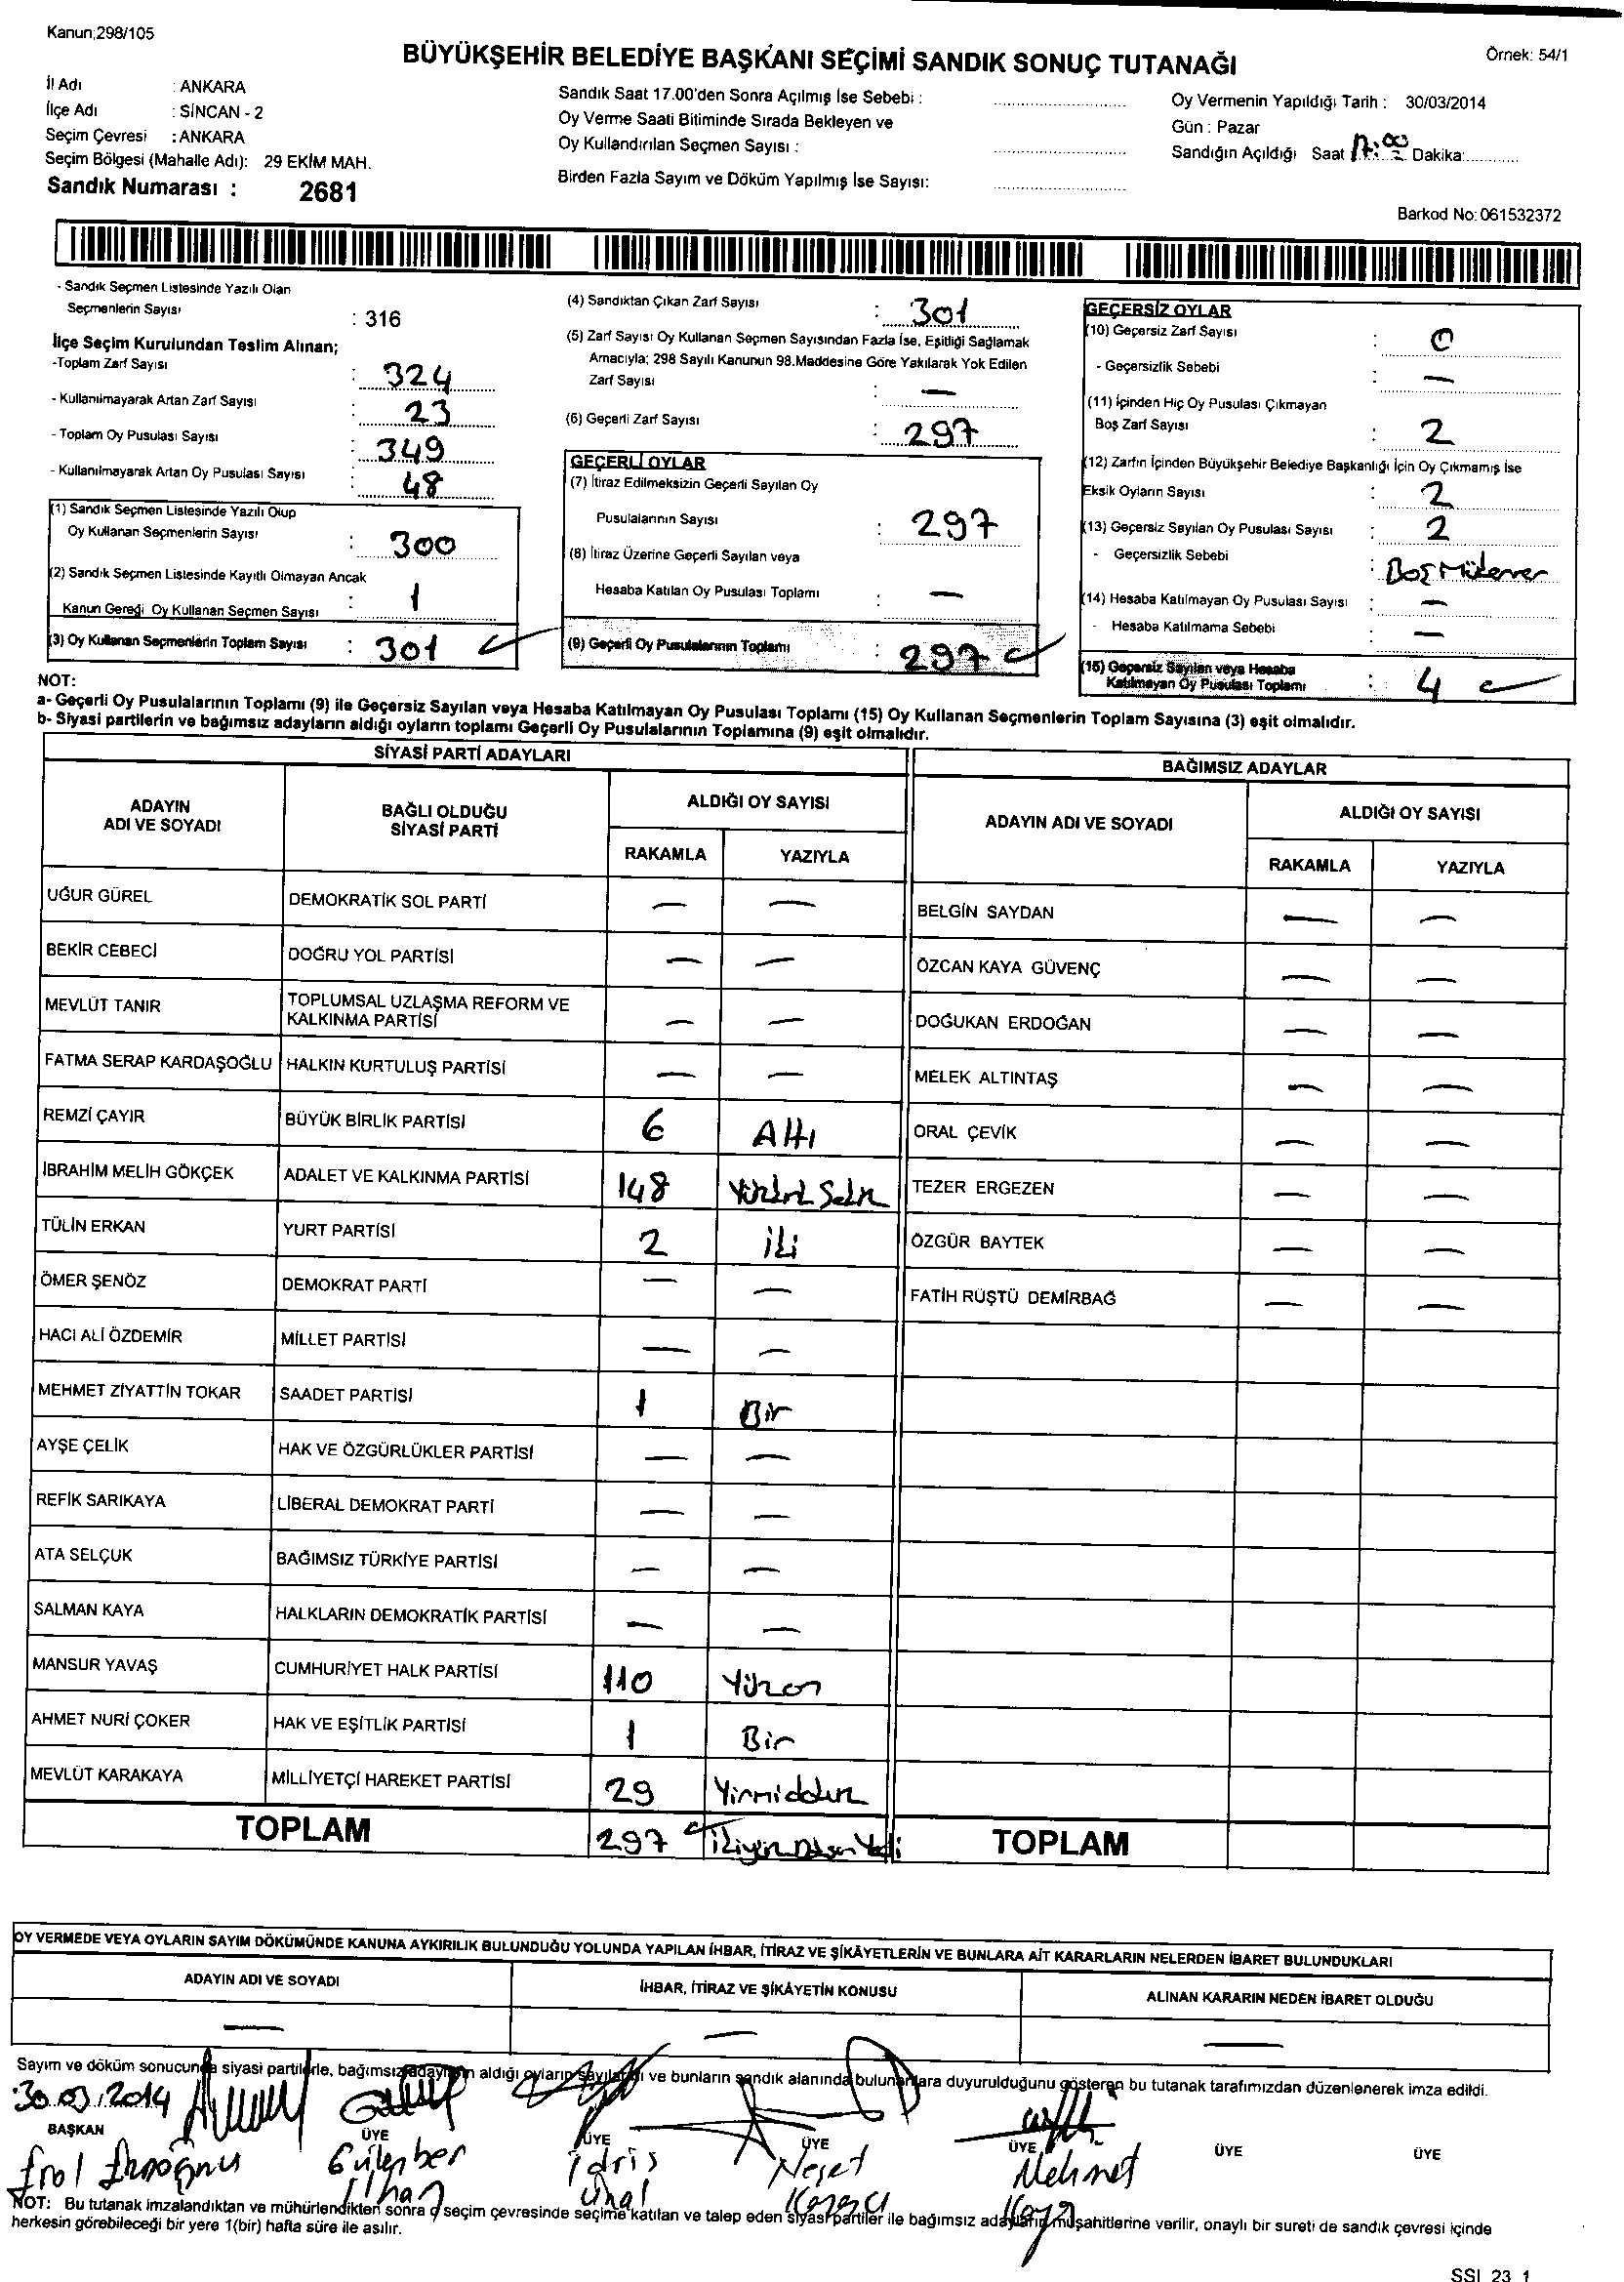 Kanun;298/105
BÜYÜKŞEHİR BELEDİYE BAŞKANI SEÇİMİ SANDIK SONUÇ TUTANAĞI
Örnek: 54/1
İl Adı : ANKARA
İlçe Adı : SİNCAN - 2
Seçim Çevresi : ANKARA
Seçim Bölgesi (Mahalle Adı): 29 EKİM MAH.
Sandık Numarası : 2681
Sandık Saat 17.00'den Sonra Açılmış İse Sebebi :
Oy Verme Saati Bitiminde Sırada Bekleyen ve
Oy Kullandırılan Seçmen Sayısı :
Birden Fazla Sayım ve Döküm Yapılmış İse Sayısı:
Oy Vermenin Yapıldığı Tarih : 30/03/2014
Gün : Pazar
Sandığın Açıldığı Saat 17:00 Dakika:
Barkod No: 061532372
- Sandık Seçmen Listesinde Yazılı Olan
Seçmenlerin Sayısı : 316
İlçe Seçim Kurulundan Teslim Alınan;
-Toplam Zarf Sayısı : 324
- Kullanılmayarak Artan Zarf Sayısı : 23
- Toplam Oy Pusulası Sayısı : 349
- Kullanılmayarak Artan Oy Pusulası Sayısı : 48
(1) Sandık Seçmen Listesinde Yazılı Olup
Oy Kullanan Seçmenlerin Sayısı : 300
(2) Sandık Seçmen Listesinde Kayıtlı Olmayan Ancak
Kanun Gereği Oy Kullanan Seçmen Sayısı : 1
(3) Oy Kullanan Seçmenlerin Toplam Sayısı : 301
(4) Sandıktan Çıkan Zarf Sayısı : 301
(5) Zarf Sayısı Oy Kullanan Seçmen Sayısından Fazla İse, Eşitliği Sağlamak
Amacıyla; 298 Sayılı Kanunun 98.Maddesine Göre Yakılarak Yok Edilen
Zarf Sayısı : —
(6) Geçerli Zarf Sayısı : 297
GEÇERLİ OYLAR
(7) İtiraz Edilmeksizin Geçerli Sayılan Oy
Pusulalarının Sayısı : 297
(8) İtiraz Üzerine Geçerli Sayılan veya
Hesaba Katılan Oy Pusulası Toplamı : —
(9) Geçerli Oy Pusulalarının Toplamı : 297
GEÇERSİZ OYLAR
(10) Geçersiz Zarf Sayısı : 0
- Geçersizlik Sebebi : —
(11) İçinden Hiç Oy Pusulası Çıkmayan
Boş Zarf Sayısı : 2
(12) Zarfın İçinden Büyükşehir Belediye Başkanlığı İçin Oy Çıkmamış İse
Eksik Oyların Sayısı : 2
(13) Geçersiz Sayılan Oy Pusulası Sayısı : 2
- Geçersizlik Sebebi : Boş
(14) Hesaba Katılmayan Oy Pusulası Sayısı : —
- Hesaba Katılmama Sebebi : —
(15) Geçersiz Sayılan veya Hesaba
Katılmayan Oy Pusulası Toplamı : 4
NOT:
a- Geçerli Oy Pusulalarının Toplamı (9) ile Geçersiz Sayılan veya Hesaba Katılmayan Oy Pusulası Toplamı (15) Oy Kullanan Seçmenlerin Toplam Sayısına (3) eşit olmalıdır.
b- Siyasi partilerin ve bağımsız adayların aldığı oyların toplamı Geçerli Oy Pusulalarının Toplamına (9) eşit olmalıdır.
SİYASİ PARTİ ADAYLARI
ADAYIN ADI VE SOYADI
BAĞLI OLDUĞU SİYASİ PARTİ
ALDIĞI OY SAYISI
RAKAMLA YAZIYLA
UĞUR GÜREL DEMOKRATİK SOL PARTİ — —
BEKİR CEBECİ DOĞRU YOL PARTİSİ — —
MEVLÜT TANIR TOPLUMSAL UZLAŞMA REFORM VE KALKINMA PARTİSİ — —
FATMA SERAP KARDAŞOĞLU HALKIN KURTULUŞ PARTİSİ — —
REMZİ ÇAYIR BÜYÜK BİRLİK PARTİSİ 6 Altı
İBRAHİM MELİH GÖKÇEK ADALET VE KALKINMA PARTİSİ 148
TÜLİN ERKAN YURT PARTİSİ 2 iki
ÖMER ŞENÖZ DEMOKRAT PARTİ — —
HACI ALİ ÖZDEMİR MİLLET PARTİSİ — —
MEHMET ZİYATTİN TOKAR SAADET PARTİSİ 1 Bir
AYŞE ÇELİK HAK VE ÖZGÜRLÜKLER PARTİSİ — —
REFİK SARIKAYA LİBERAL DEMOKRAT PARTİ — —
ATA SELÇUK BAĞIMSIZ TÜRKİYE PARTİSİ — —
SALMAN KAYA HALKLARIN DEMOKRATİK PARTİSİ — —
MANSUR YAVAŞ CUMHURİYET HALK PARTİSİ 110 Yüzon
AHMET NURİ ÇOKER HAK VE EŞİTLİK PARTİSİ 1 Bir
MEVLÜT KARAKAYA MİLLİYETÇİ HAREKET PARTİSİ 29 Yirmidokuz
TOPLAM 297 ikiyüz Doksan Yedi
BAĞIMSIZ ADAYLAR
ADAYIN ADI VE SOYADI
ALDIĞI OY SAYISI
RAKAMLA YAZIYLA
BELGİN SAYDAN — —
ÖZCAN KAYA GÜVENÇ — —
DOĞUKAN ERDOĞAN — —
MELEK ALTINTAŞ — —
ORAL ÇEVİK — —
TEZER ERGEZEN — —
ÖZGÜR BAYTEK — —
FATİH RÜŞTÜ DEMİRBAĞ — —
TOPLAM
OY VERMEDE VEYA OYLARIN SAYIM DÖKÜMÜNDE KANUNA AYKIRILIK BULUNDUĞU YOLUNDA YAPILAN İHBAR, İTİRAZ VE ŞİKÂYETLERİN VE BUNLARA AİT KARARLARIN NELERDEN İBARET BULUNDUKLARI
ADAYIN ADI VE SOYADI
İHBAR, İTİRAZ VE ŞİKÂYETİN KONUSU
ALINAN KARARIN NEDEN İBARET OLDUĞU
— — —
Sayım ve döküm sonucunda siyasi partilerle, bağımsız adayların aldığı oyların sayıları ve bunların sandık alanında bulunanlara duyurulduğunu gösteren bu tutanak tarafımızdan düzenlenerek imza edildi.
30.03.2014
BAŞKAN ÜYE ÜYE ÜYE ÜYE ÜYE ÜYE
Erol
Gülenber İlhan
idris Ünal
Neşet
Mehmet Kaya
NOT: Bu tutanak imzalandıktan ve mühürlendikten sonra o seçim çevresinde seçime katılan ve talep eden siyasi partiler ile bağımsız adayların müşahitlerine verilir, onaylı bir sureti de sandık çevresi içinde
herkesin görebileceği bir yere 1(bir) hafta süre ile asılır.
SSI 23 1